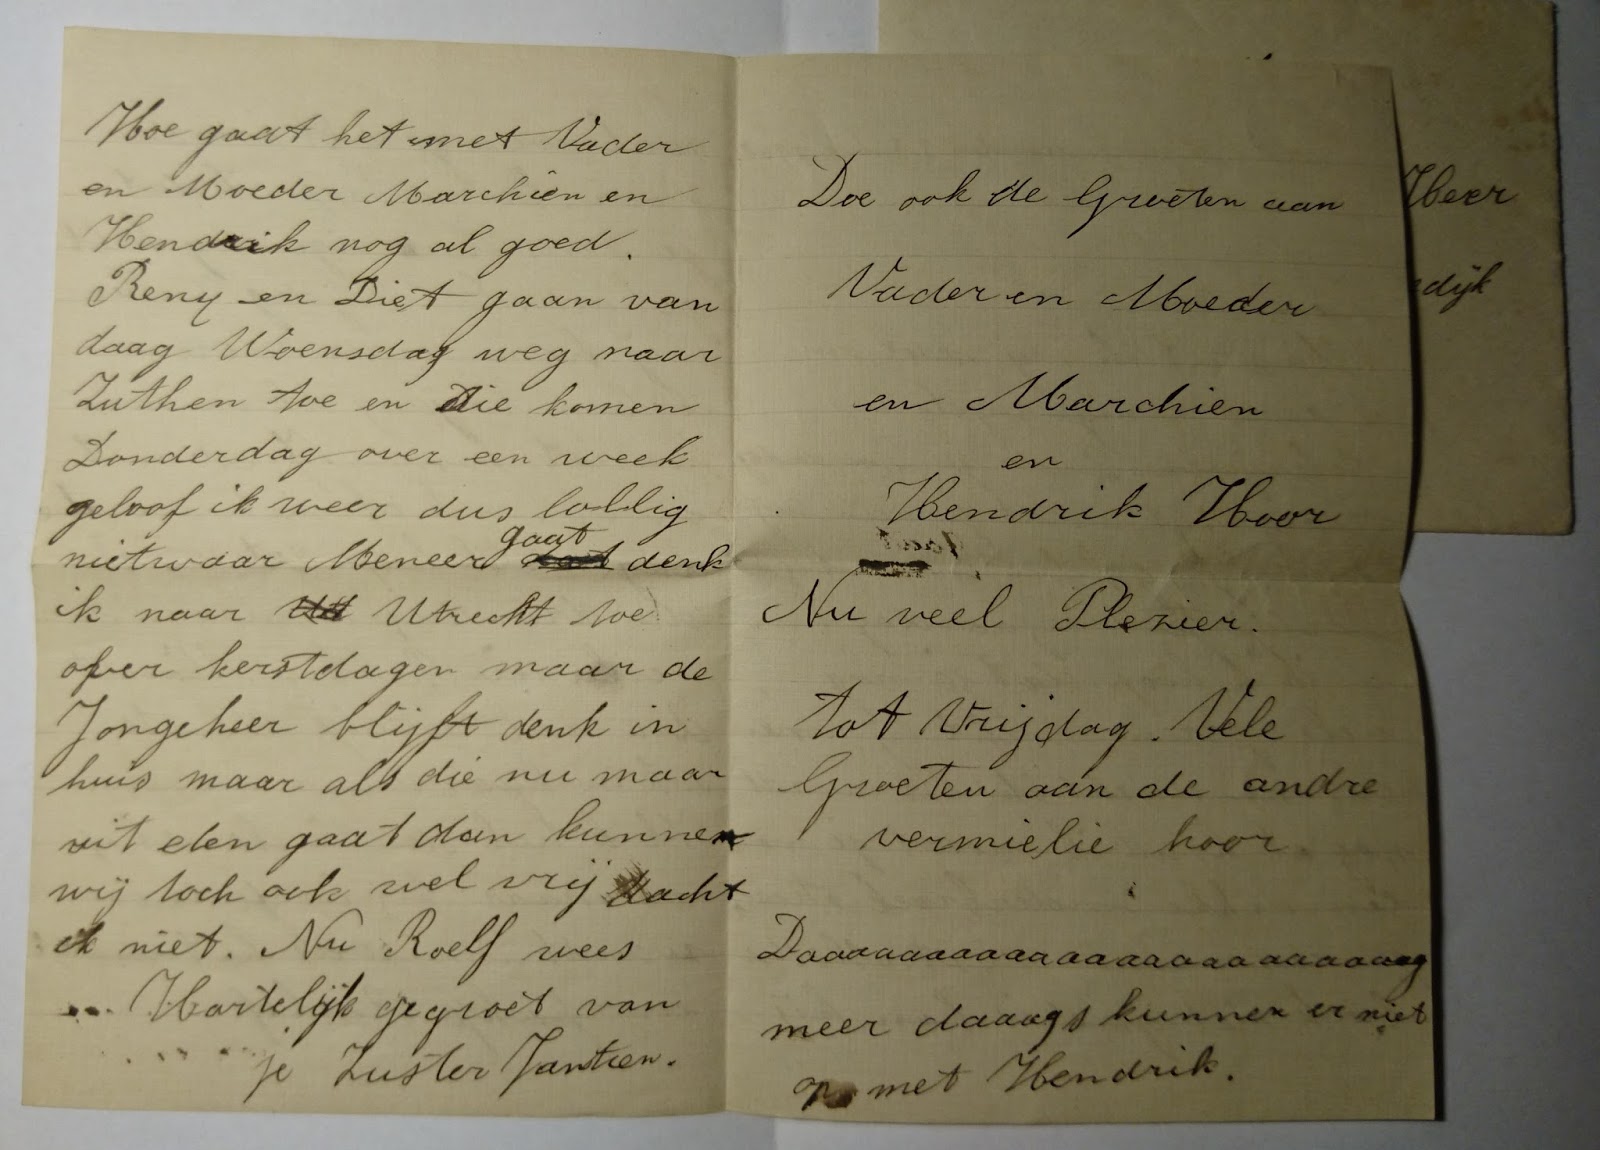 Hoe gaat het met Vader
en Moeder Marchien en
Hendrik nog al goed.
Reny en Diet gaan van
daag Woensdag weg naar
Zuthen toe en die komen
Donderdag over een week
geloof ik weer dus lollig
nietwaar Meneer gaat denk
ik naar Utrecht toe
over kerstdagen maar de
Jongeheer blijft denk in
huis maar als die nu maar
uit eten gaat dan kunnen
wij toch ook wel vrij dacht
ik niet. Nu Roelf wees
Hartelijk gegroet van
je Zuster Jantien.
Doe ook de Groeten aan
Vader en Moeder
en Marchien
en
Hendrik Hoor
Nu veel Plezier.
tot Vrijdag. Vele
Groeten aan de andre
vermielie hoor
Daaaaaaaaaaaaaaaaaaaaaaag
meer daaags kunnen er niet
op met Hendrik.
Heer
dijk